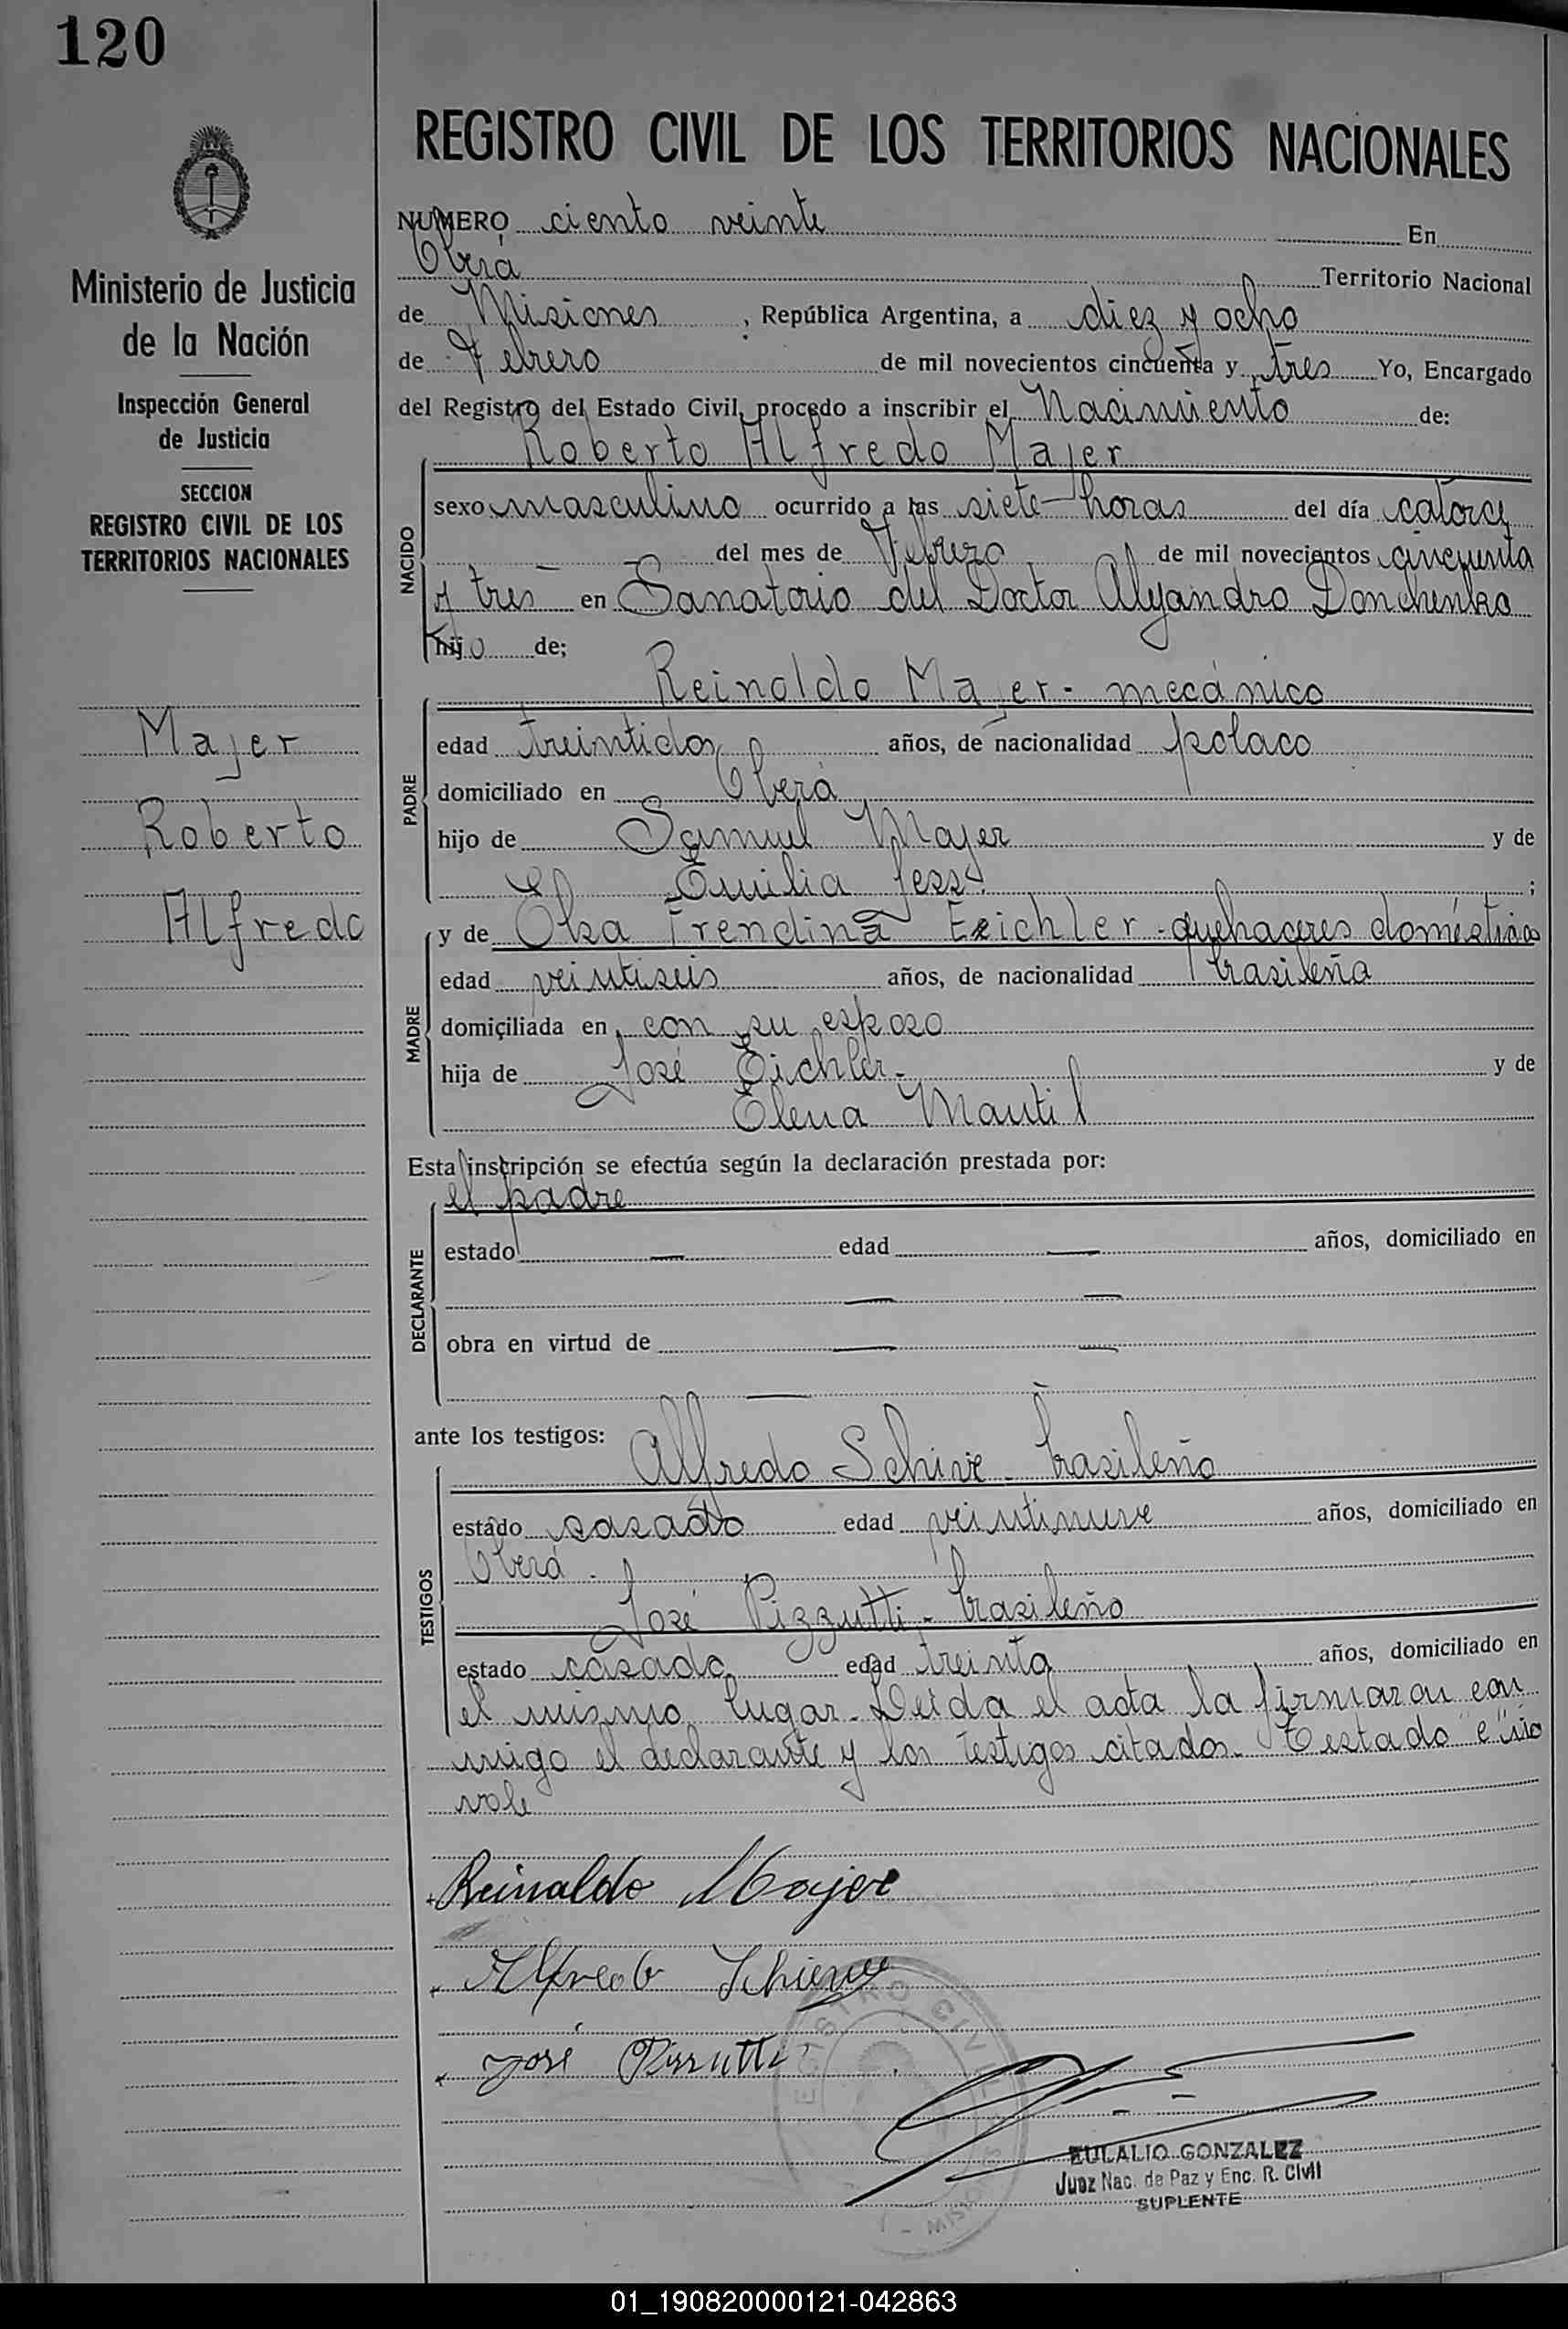 120
REGISTRO CIVIL DE LOS TERRITORIOS NACIONALES
Ministerio de Justicia
de la Nación
Inspección General
de Justicia
SECCION
REGISTRO CIVIL DE LOS
TERRITORIOS NACIONALES
Majer
Roberto
Alfredo
NUMERO ciento veinte En
Oberá Territorio Nacional
de Misiones, República Argentina, a diez y ocho
de Febrero de mil novecientos cincuenta y tres Yo, Encargado
del Registro del Estado Civil, procedo a inscribir el Nacimiento de:
Roberto Alfredo Majer
NACIDO
sexo masculino ocurrido a las siete horas del día catorce
del mes de Febrero de mil novecientos cincuenta
y tres en Sanatorio del Doctor Alejandro Donchenko
hijo de;
Reinaldo Majer - mecánico
PADRE
edad treintidos años, de nacionalidad polaco
domiciliado en Oberá
hijo de Samuel Majer y de
Emilia ;
y de Elsa Frendina Eeichler - quehaceres domésticos
MADRE
edad veintiseis años, de nacionalidad brasileña
domiciliada en con su esposo
hija de José Eichler - y de
Elena Mautil
Esta inscripción se efectúa según la declaración prestada por:
el padre
DECLARANTE
estado — edad — años, domiciliado en
— —
obra en virtud de — —
—
ante los testigos:
Alfredo Schive - brasileño
TESTIGOS
estado casado edad veintinueve años, domiciliado en
Oberá -
José Pizzutti - brasileño
estado casado edad treinta años, domiciliado en
el mismo lugar - Leida el acta la firmaron con
migo el declarante y los testigos citados - Testado "e" no
vale
Reinaldo Majer
Alfredo
José Pizzutti
REGISTRO CIVIL
EULALIO GONZALEZ
Juez Nac. de Paz y Enc. R. Civil
SUPLENTE
01_190820000121-042863